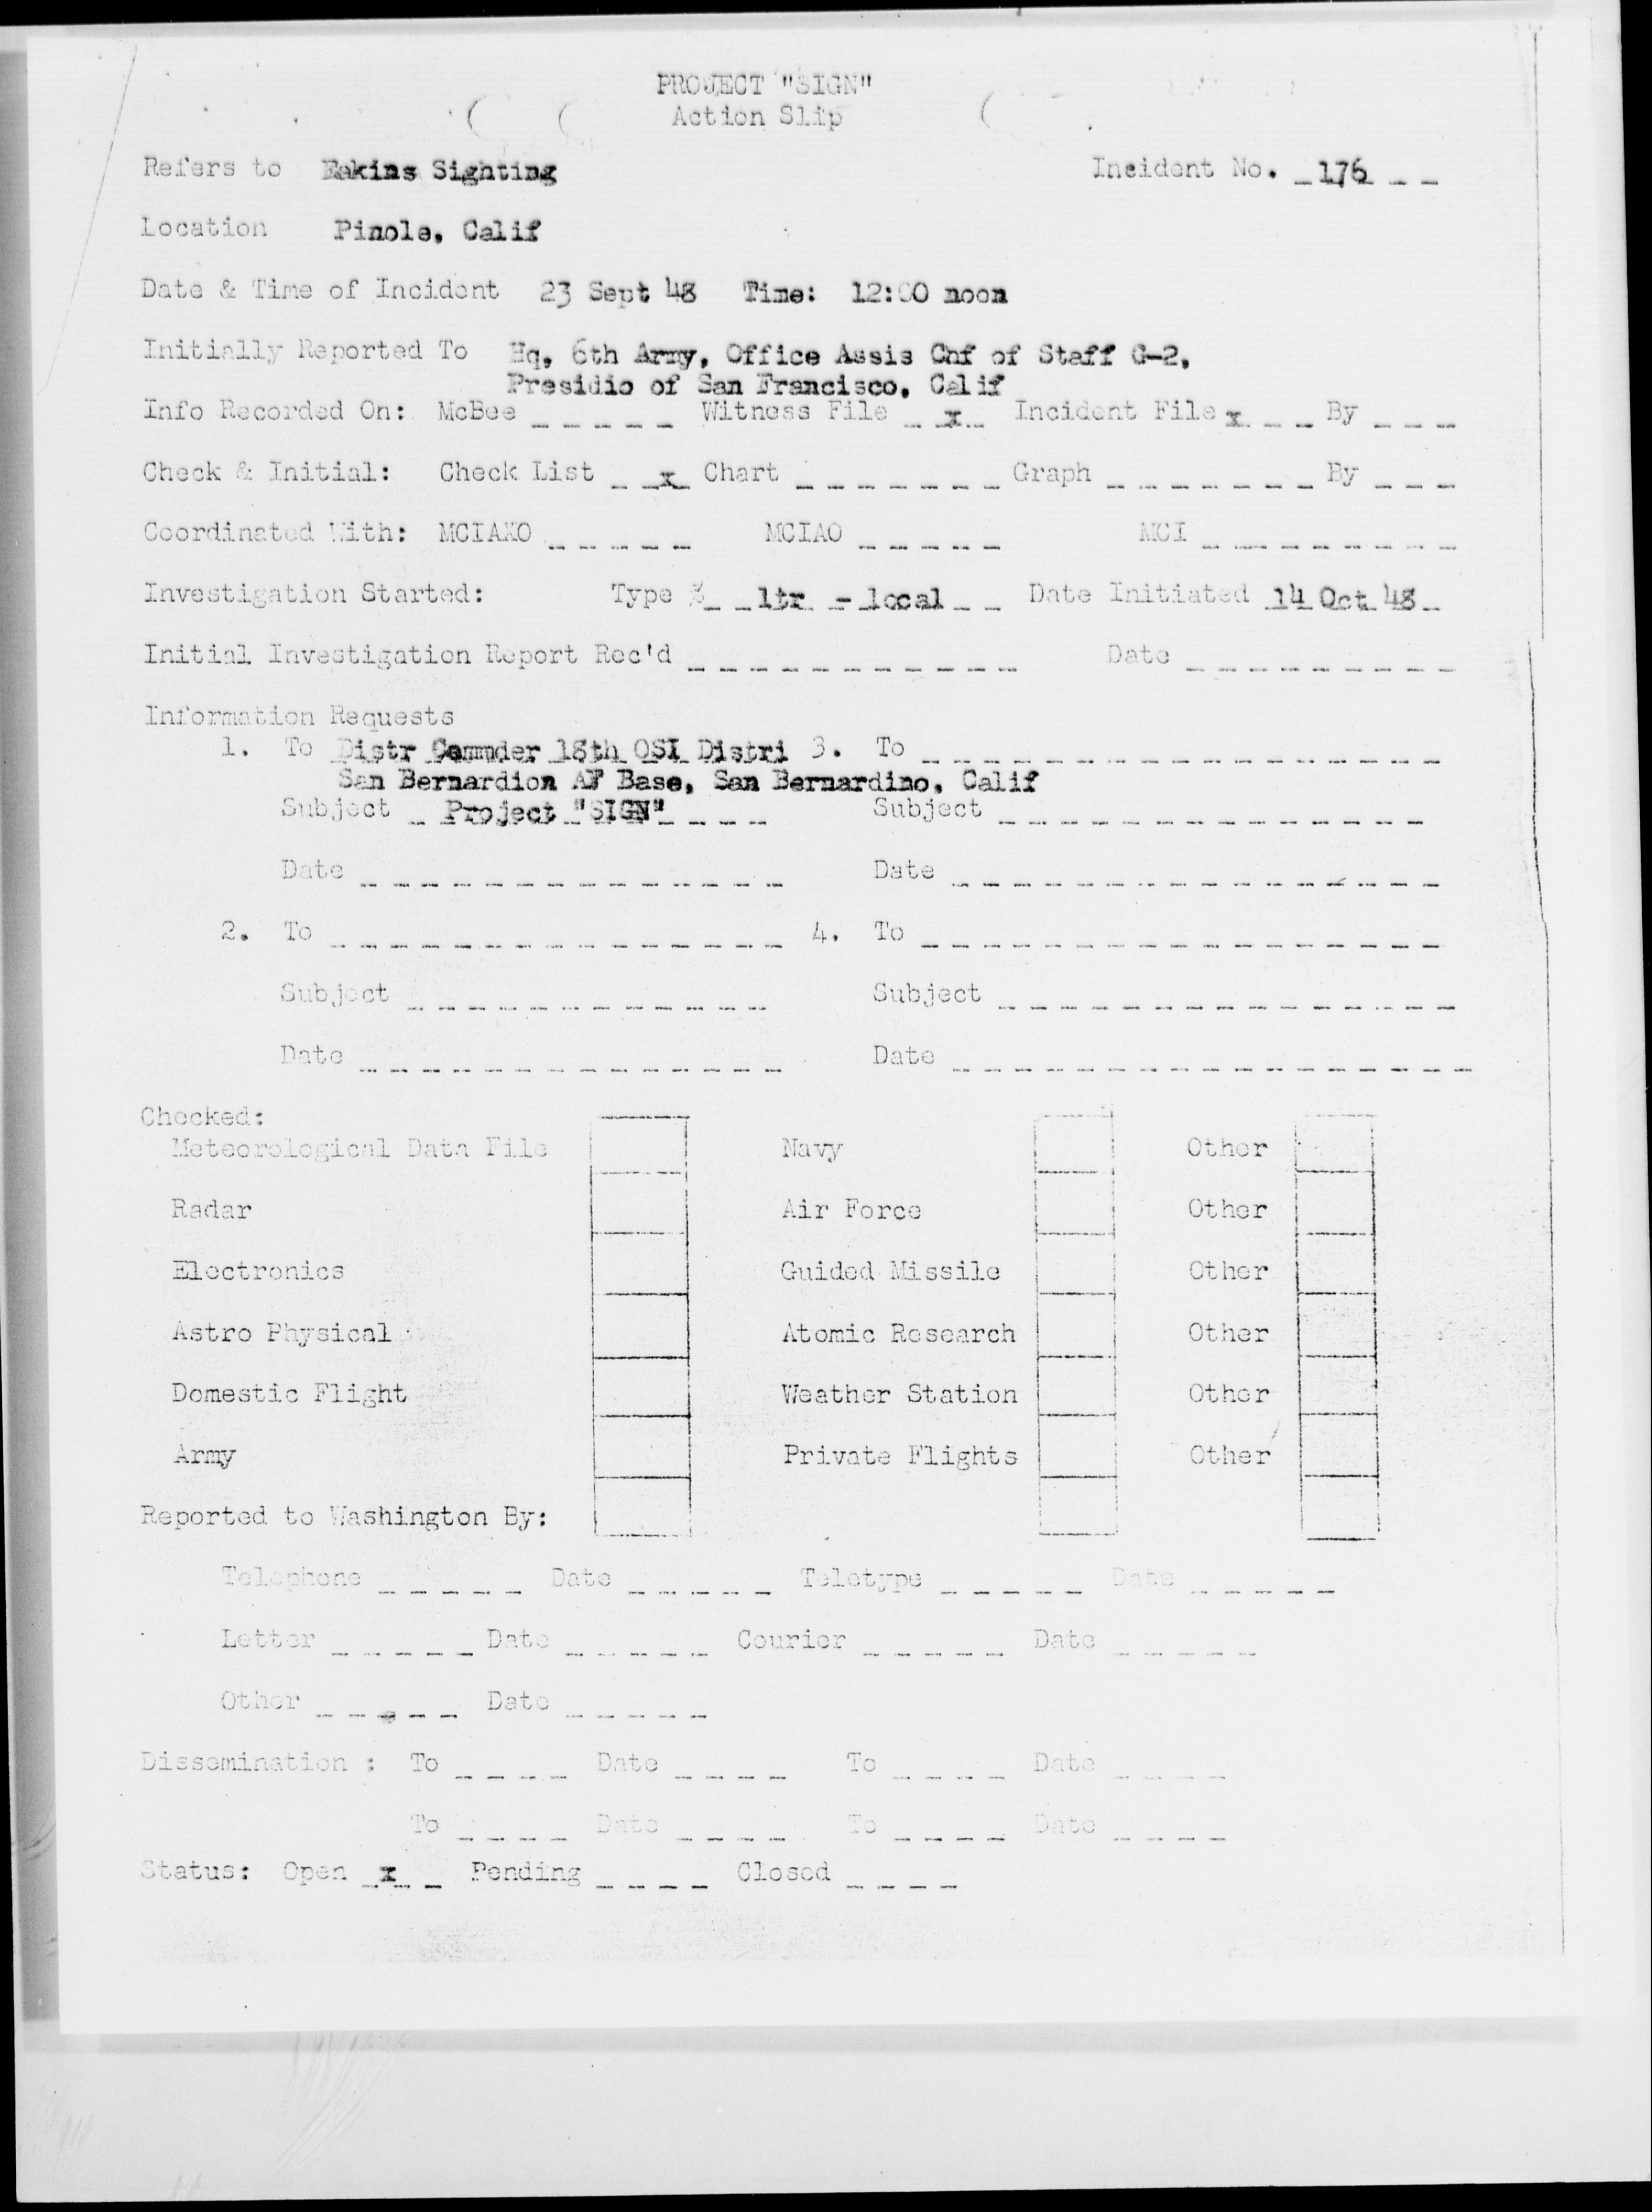 PROJECT "SIGN"
Action Slip
Refers to Eakins Sighting Incident No. 176
Location Pinole, Calif
Date & Time of Incident 23 Sept 48 Time: 12:00 noon
Initially Reported To Hq, 6th Army, Office Assis Chf of Staff G-2,
Presidio of San Francisco, Calif
Info Recorded On: McBee _ _ _ _ _ Witness File _ x _ Incident File x _ _ By _ _ _
Check & Initial: Check List _ x Chart _ _ _ _ _ _ _ Graph _ _ _ _ _ _ _ By _ _ _
Coordinated With: MCIAXO _ _ _ _ _ MCIAO _ _ _ _ _ MCI _ _ _ _ _ _ _ _
Investigation Started: Type _ _ ltr - local _ _ Date Initiated 14 Oct 48
Initial Investigation Report Rec'd _ _ _ _ _ _ _ _ _ _ _ Date _ _ _ _ _ _ _ _ _
Information Requests
1. To Distr Commder 18th OSI Distri 3. To _ _ _ _ _ _ _ _ _ _ _ _ _ _ _ _ _
San Bernardion AF Base, San Bernardino, Calif
Subject _ Project "SIGN" _ _ _ _ Subject _ _ _ _ _ _ _ _ _ _ _ _ _ _
Date _ _ _ _ _ _ _ _ _ _ _ _ _ _ Date _ _ _ _ _ _ _ _ _ _ _ _ _ _ _ _
2. To _ _ _ _ _ _ _ _ _ _ _ _ _ _ _ 4. To _ _ _ _ _ _ _ _ _ _ _ _ _ _ _ _ _
Subject _ _ _ _ _ _ _ _ _ _ _ _ Subject _ _ _ _ _ _ _ _ _ _ _ _ _ _ _
Date _ _ _ _ _ _ _ _ _ _ _ _ _ _ Date _ _ _ _ _ _ _ _ _ _ _ _ _ _ _ _ _
Checked:
Meteorological Data File Navy Other
Radar Air Force Other
Electronics Guided Missile Other
Astro Physical Atomic Research Other
Domestic Flight Weather Station Other
Army Private Flights Other
Reported to Washington By:
Telephone _ _ _ _ _ Date _ _ _ _ _ Teletype _ _ _ _ _ Date _ _ _ _ _
Letter _ _ _ _ _ Date _ _ _ _ _ Courier _ _ _ _ _ Date _ _ _ _ _
Other _ _ _ _ _ Date _ _ _ _ _
Dissemination : To _ _ _ _ Date _ _ _ _ To _ _ _ _ Date _ _ _ _
To _ _ _ _ Date _ _ _ _ To _ _ _ _ Date _ _ _ _
Status: Open x _ Pending _ _ _ _ Closed _ _ _ _